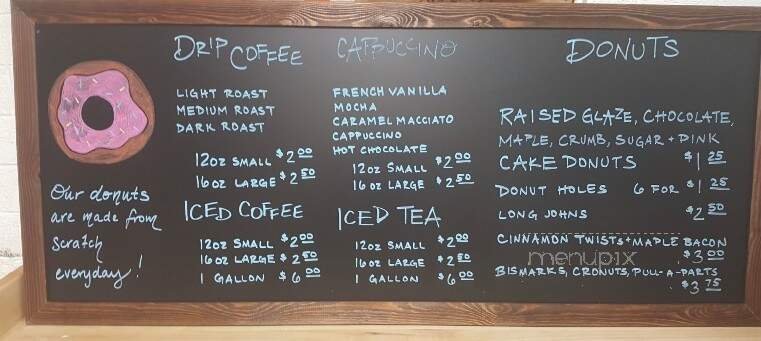 DRIP COFFEE
LIGHT ROAST
MEDIUM ROAST
DARK ROAST
12oz SMALL $2.00
16oz LARGE $2.50
ICED COFFEE
12oz SMALL $2.00
16oz LARGE $2.50
1 GALLON $6.00
CAPPUCCINO
FRENCH VANILLA
MOCHA
CARAMEL MACCIATO
CAPPUCCINO
HOT CHOCOLATE
12oz SMALL $2.00
16oz LARGE $2.50
ICED TEA
12oz SMALL $2.00
16oz LARGE $2.50
1 GALLON $6.00
DONUTS
RAISED GLAZE, CHOCOLATE,
MAPLE, CRUMB, SUGAR + PINK
CAKE DONUTS $1.25
DONUT HOLES 6 FOR $1.25
LONG JOHNS $2.50
CINNAMON TWISTS + MAPLE BACON
$3.00
BISMARKS, CRONUTS, PULL-A-PARTS
$3.75
Our donuts
are made from
scratch
everyday!
menupix